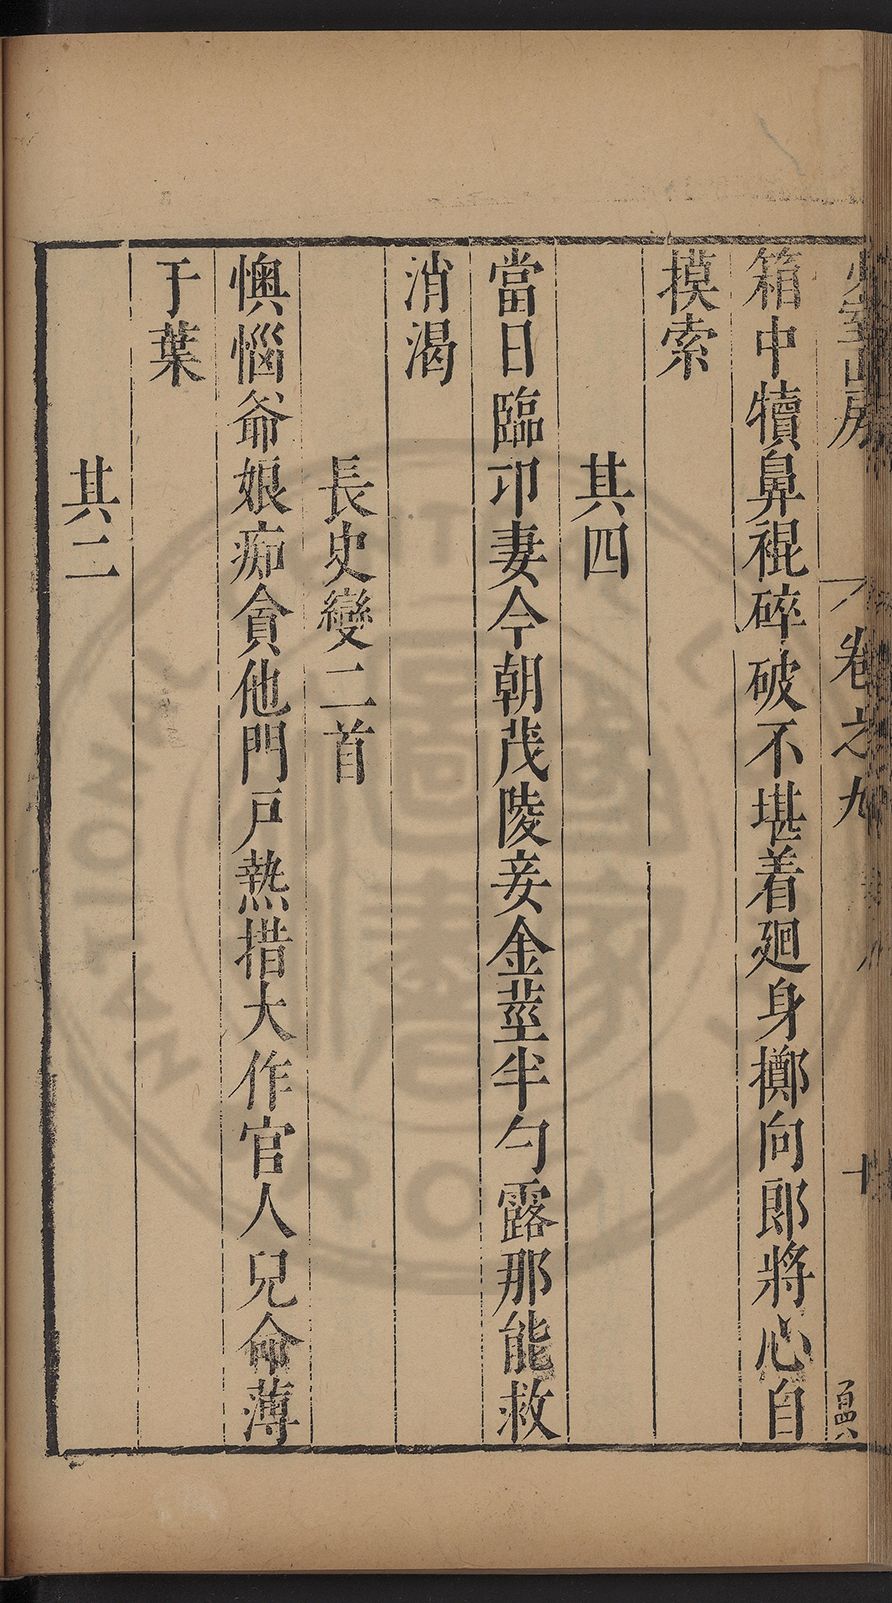 箱中犢鼻裩碎破不堪着廻身擲向郎將心自
摸索
其四
當日臨卭妻今朝茂陵妾金莖半勺露那能救
消渴
長史變二首
懊惱爺娘痴貪他門戶熱措大作官人兒命薄
于葉
其二
卷之九
十